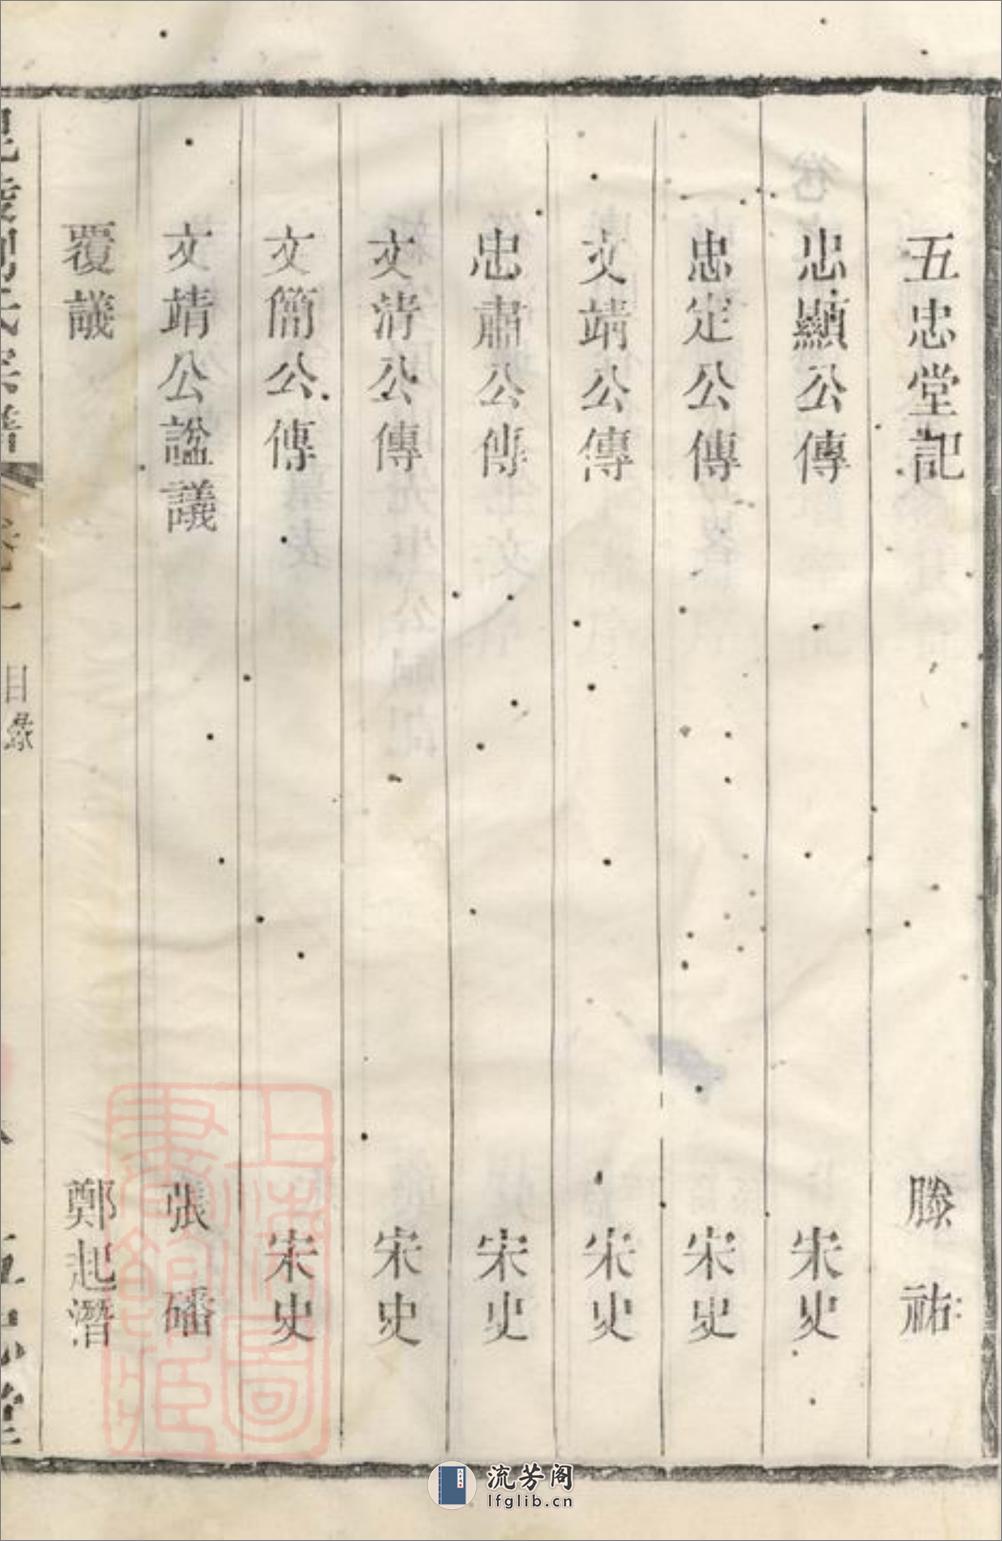 五忠堂記 滕祐
忠顯公傳 宋史
忠定公傳 宋史
文靖公傳 宋史
忠肅公傳 宋史
文清公傳 宋史
文簡公傳 宋史
文靖公謚議 張磻
覆議 鄭起潛
目錄
上海圖書館藏
流芳阁
lfglib.cn